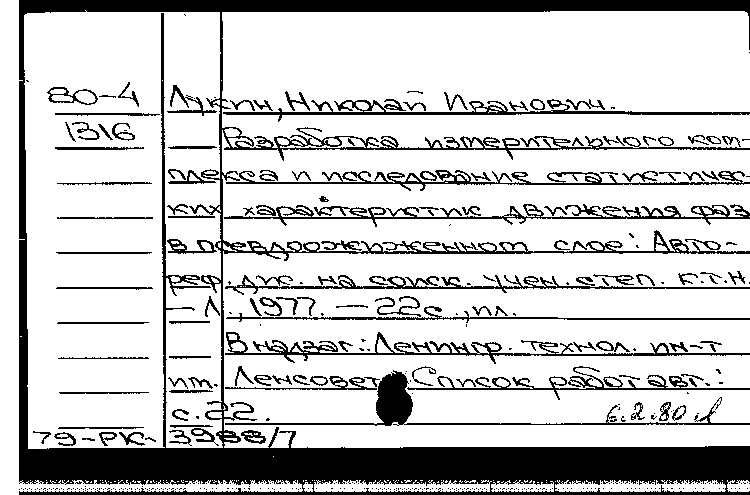 80-4 Лукин, Николай Иванович.
1316 Разработка измерительного ком-
плекса и исследование статистичес-
ких характеристик движения фаз
в псевдоожиженном слое: Авто-
реф. дис. на соиск. учен. степ. к.т.н.
— Л., 1977. — 22с., ил.
В надзаг.: Ленингр. технол. ин-т
им. Ленсовета. Список работ авт.:
с. 22.
6.2.80
79-РК- 3988/7